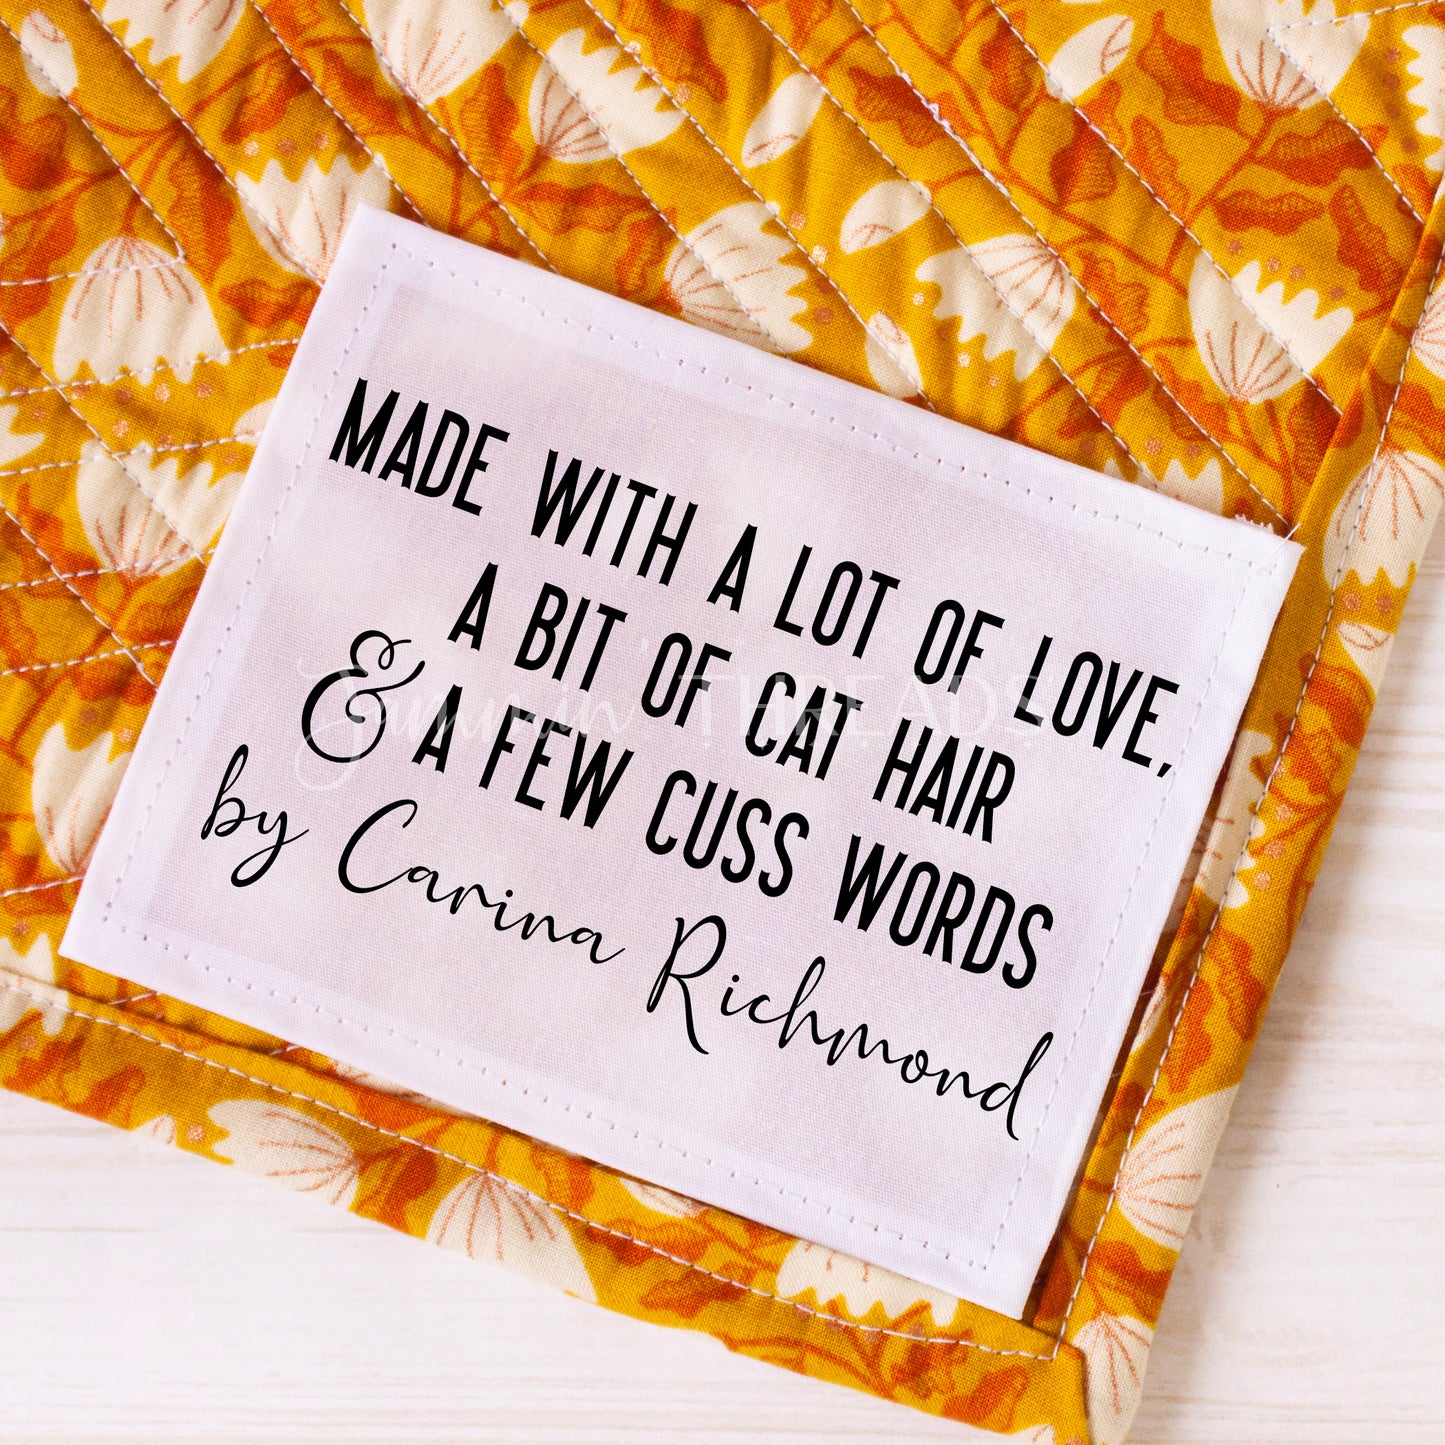 MADE WITH A LOT OF LOVE,
A BIT OF CAT HAIR
& A FEW CUSS WORDS
by Carina Richmond
Jammin' THREADS